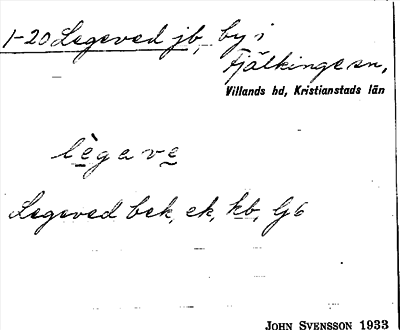 1-20 Legeved jb, by i
Fjälkinge sn,
Villands hd, Kristianstads län
lègave
Legeved bek, ek, kb, Gjb
JOHN SVENSSON 1933